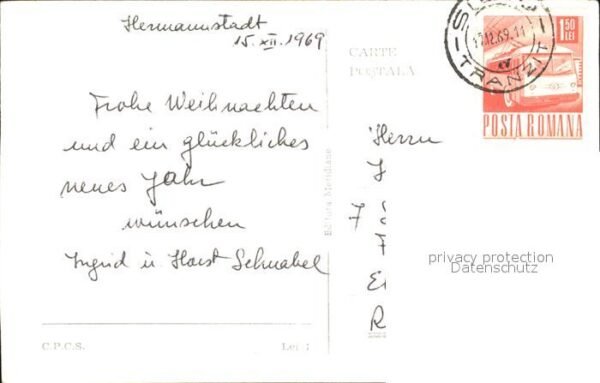 Hermannstadt
15. XII. 1969
CARTE
POȘTALĂ
Frohe Weihnachten
und ein glückliches
neues Jahr
wünschen
Ingrid u. Horst Schnabel
C.P.C.S.
Lei 1
Editura Meridiane
17.12.69.11
TRANZIT
1.50
LEI
POSTA ROMANA
Herrn
7
R
privacy protection
Datenschutz